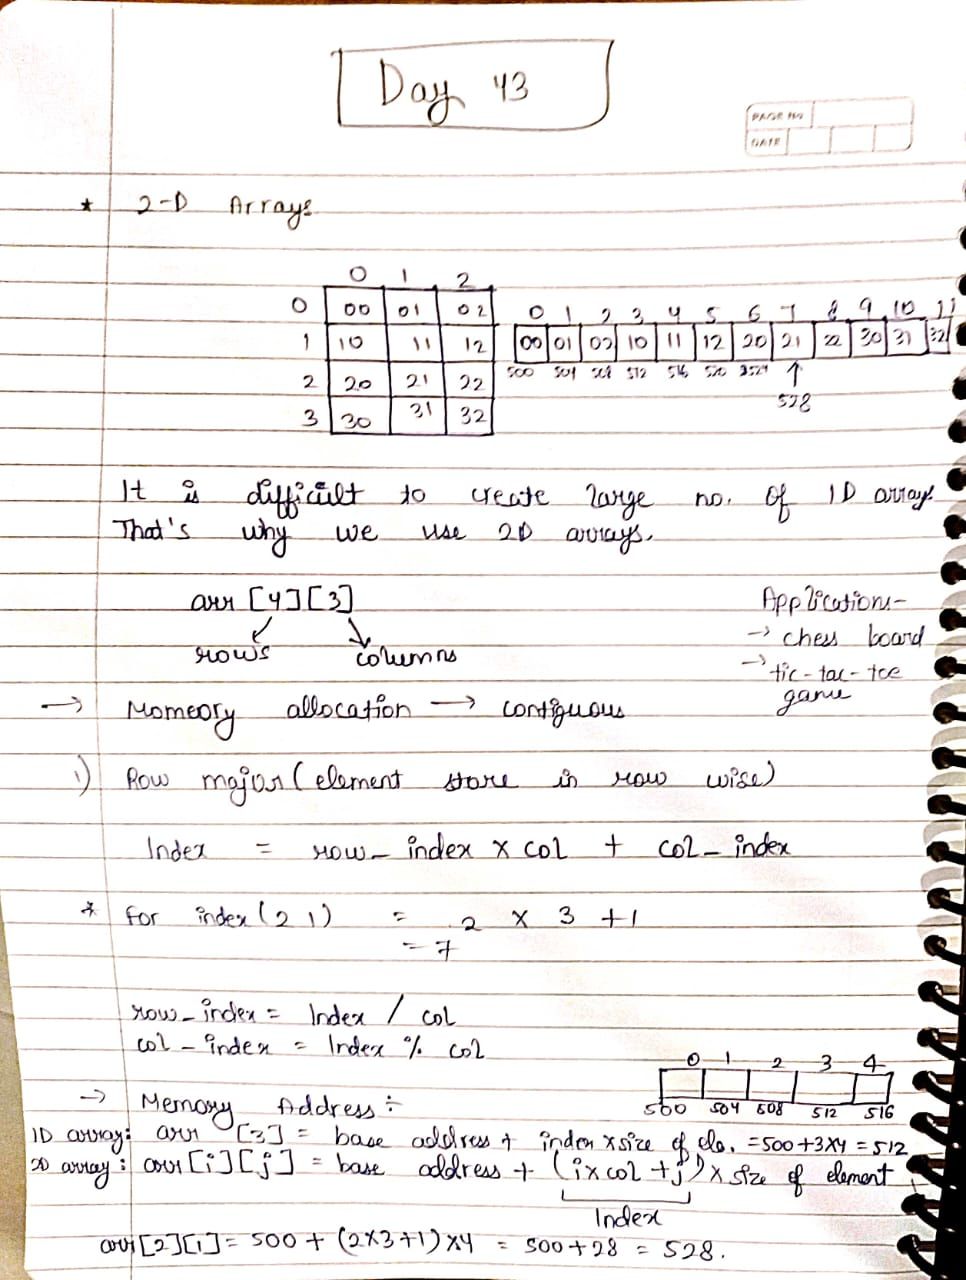 Day 43
PAGE NO
DATE
* 2-D Arrays
0 1 2
0 00 01 02
1 10 11 12
2 20 21 22
3 30 31 32
0 1 2 3 4 5 6 7 8 9 10 11
00 01 02 10 11 12 20 21 22 30 31 32
500 504 508 512 516 520 524
↑
528
It is difficult to create large no. of 1D arrays
That's why we use 2D arrays.
arr [4][3]
rows columns
Applications-
→ chess board
→ tic-tac-toe
game
→ Momeory allocation → contiguous
1) Row major (element store in row wise)
Index = row_index x col + col_index
* for index (2 1) = 2 x 3 + 1
= 7
row_index = Index / col
col_index = Index % col
0 1 2 3 4
500 504 508 512 516
→ Memory Address :-
1D array: arr [3] = base address + index x size of ele. = 500+3x4 = 512
2D array: arr [i][j] = base address + (i x col + j) x size of element
Index
arr[2][1] = 500 + (2x3+1) x4 = 500+28 = 528.